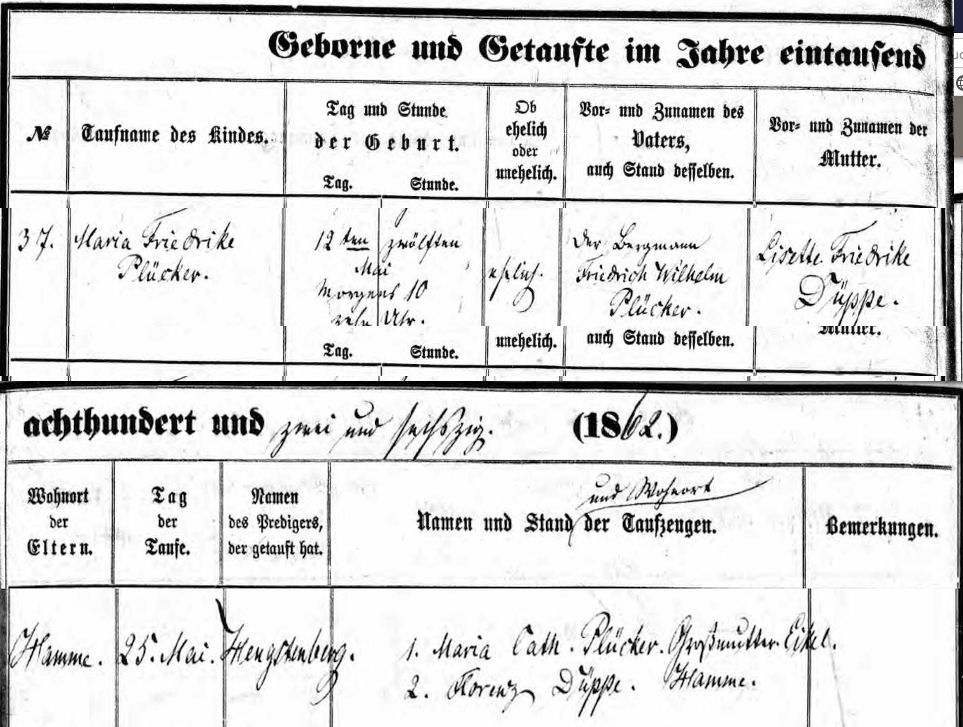 Geborne und Getaufte im Jahre eintausend
№
Taufname des Kindes.
Tag und Stunde
der Geburt.
Tag. Stunde.
Ob
ehelich
oder
unehelich.
Vor- und Zunamen des
Vaters,
auch Stand desselben.
Vor- und Zunamen der
Mutter.
37.
Maria Friedrike
Plücker.
12ten zwölften
Mai
Morgens 10
zehn Uhr.
ehelich.
Der Bergmann
Friedrich Wilhelm
Plücker.
Lisette Friedrike
Düppe.
Tag. Stunde.
unehelich.
auch Stand desselben.
Mutter.
achthundert und zwei und sechszig. (1862.)
Wohnort
der
Eltern.
Tag
der
Taufe.
Namen
des Predigers,
der getauft hat.
und Wohnort
Namen und Stand der Taufzeugen.
Bemerkungen.
Hamme.
25. Mai.
Hengstenberg.
1. Maria Cath. Plücker. Großmutter. Eikel.
2. Florenz Düppe. Hamme.